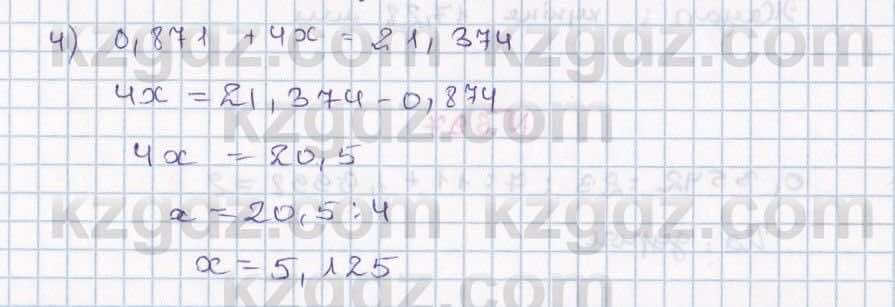 4) 0,871 + 4x = 21,374
4x = 21,374 - 0,874
4x = 20,5
x = 20,5 : 4
x = 5,125
kzgdz.com kzgdz.com
kzgdz.com
kzgdz.com kzgdz.com
kzgdz.com